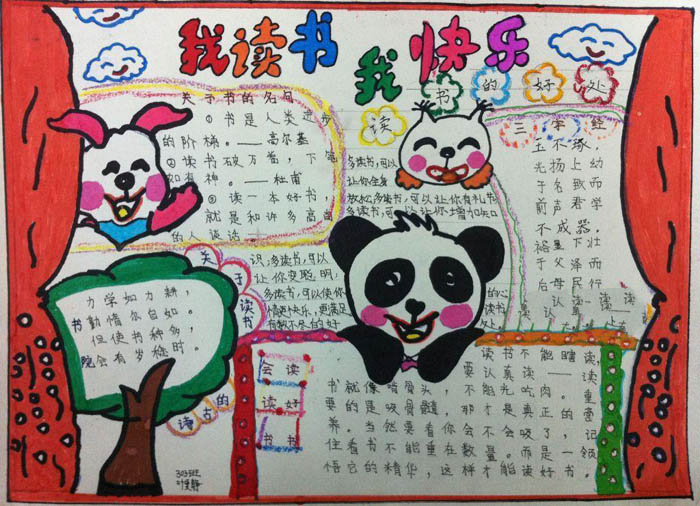 我读书 我快乐
读书的好处
关于书的名言
①书是人类进步
的阶梯。——高尔基
②读书破万卷，下笔
如有神。——杜甫
③读一本好书，
就是和许多高尚
的人谈话。
多读书，可以
让你全身
放松多读书，可以让你有礼节
多读书，可以让你增加知
识，多读书，可以
让你变聪明，
多读书，可以使你
情更快乐，
有数不尽的好
的心
读书
处。
三字经
玉不琢，
光扬上幼
于名致而
前声君学
不成器。
裕显下壮
于父泽而
后母民行
关于读书
读古的
力学如力耕，
勤惰你自如。
但使书种多，
会有岁稔时。
书院
会读
读好
书书
读书不能瞎读，
要认真读——读
书就像啃骨头，不能光吃肉。重
要的是吸骨髓，那才是真正的营
养。当然要看你会不会吸了，记
住看书不能重在数量。而是——领
悟它的精华，这样才能读好书。
303班